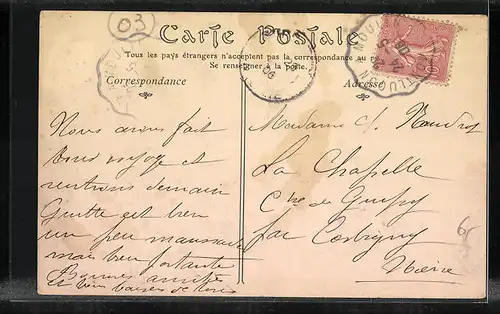 03
Carte Postale
Tous les pays étrangers n'acceptent pas la correspondance au
Se renseigner à la poste.
Correspondance
Adresse
Nous avons fait
bon voyage et
rentrons demain
Guitte est bien
un peu
mais bien portante
Bonnes amitiés
et bien baisers de
Madame
La Chapelle
Cne de
par Corbigny
Nièvre